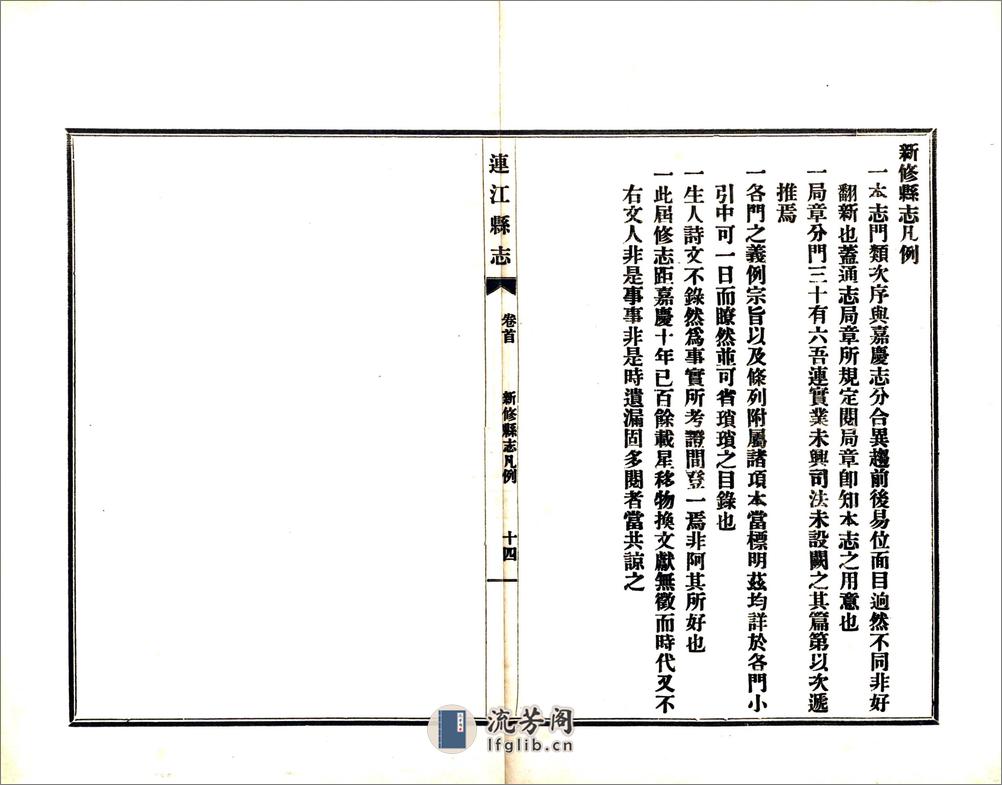 新修縣志凡例
一本志門類次序與嘉慶志分合異趨前後易位面目逈然不同非好
翻新也蓋通志局章所規定閱局章卽知本志之用意也
一局章分門三十有六吾連實業未興司法未設闕之其篇第以次遞
推焉
一各門之義例宗旨以及條列附屬諸項本當標明茲均詳於各門小
引中可一日而瞭然並可省瑣瑣之目錄也
一生人詩文不錄然爲事實所考證間登一焉非阿其所好也
一此屆修志距嘉慶十年已百餘載星移物換文獻無徵而時代又不
右文人非是事事非是時遺漏固多閱者當共諒之
連江縣志
卷首
新修縣志凡例
十四
流芳阁
lfglib.cn